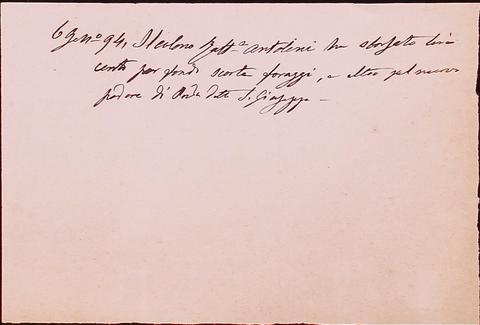 6 Genº 94, Il colono Batt.ª Antolini ha sborsato lire
cento per fondo scorta foraggi, e altro pel nuovo
podere di detto S. Giuseppe –